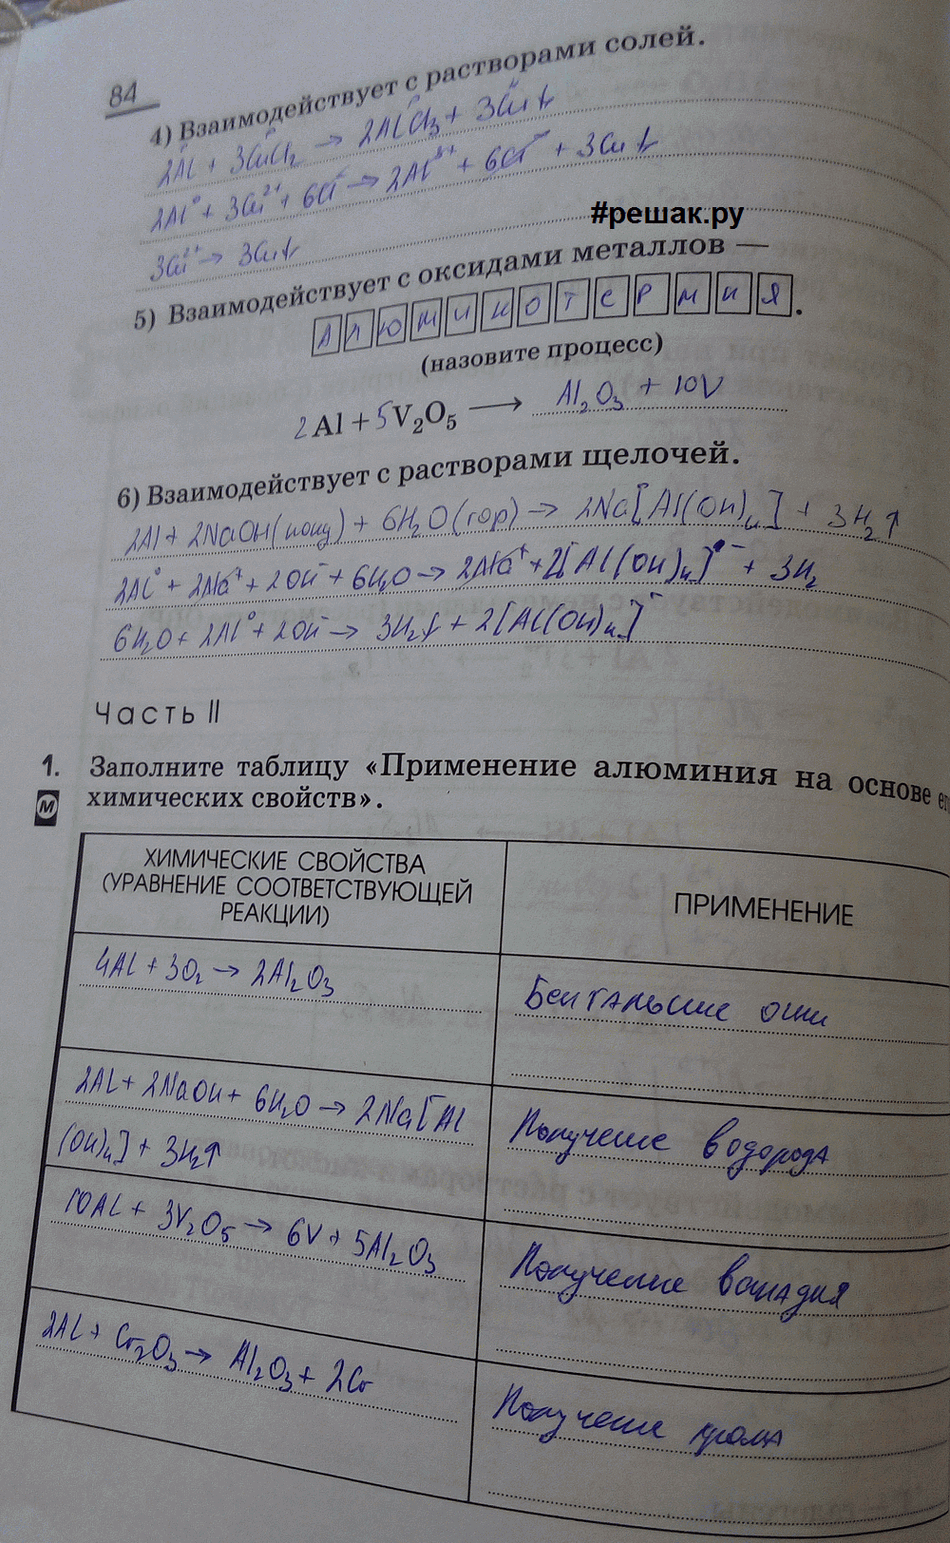 84
4) Взаимодействует с растворами солей.
2Al + 3CuCl₂ → 2AlCl₃ + 3Cu↓
2Al⁰ + 3Cu²⁺ + 6Cl⁻ → 2Al³⁺ + 6Cl⁻ + 3Cu↓
3Cu²⁺ → 3Cu↓
#решак.ру
5) Взаимодействует с оксидами металлов —
АЛЮМИНОТЕРМИЯ.
(назовите процесс)
2Al + 5V₂O₅ → Al₂O₃ + 10V
6) Взаимодействует с растворами щелочей.
2Al + 2NaOH + 6H₂O (гор) → 2Na[Al(OH)₄] + 3H₂↑
2Al⁰ + 2Na⁺ + 2OH⁻ + 6H₂O → 2Na⁺ + 2[Al(OH)₄]⁻ + 3H₂
6H₂O + 2Al⁰ + 2OH⁻ → 3H₂↑ + 2[Al(OH)₄]⁻
Часть II
1. Заполните таблицу «Применение алюминия на основе
М химических свойств».
ХИМИЧЕСКИЕ СВОЙСТВА
(УРАВНЕНИЕ СООТВЕТСТВУЮЩЕЙ
РЕАКЦИИ)
ПРИМЕНЕНИЕ
4Al + 3O₂ → 2Al₂O₃
Бенгальские огни
2Al + 2NaOH + 6H₂O → 2Na[Al
(OH)₄] + 3H₂↑
Получение водорода
10Al + 3V₂O₅ → 6V + 5Al₂O₃
Получение ванадия
2Al + Cr₂O₃ → Al₂O₃ + 2Cr
Получение хрома